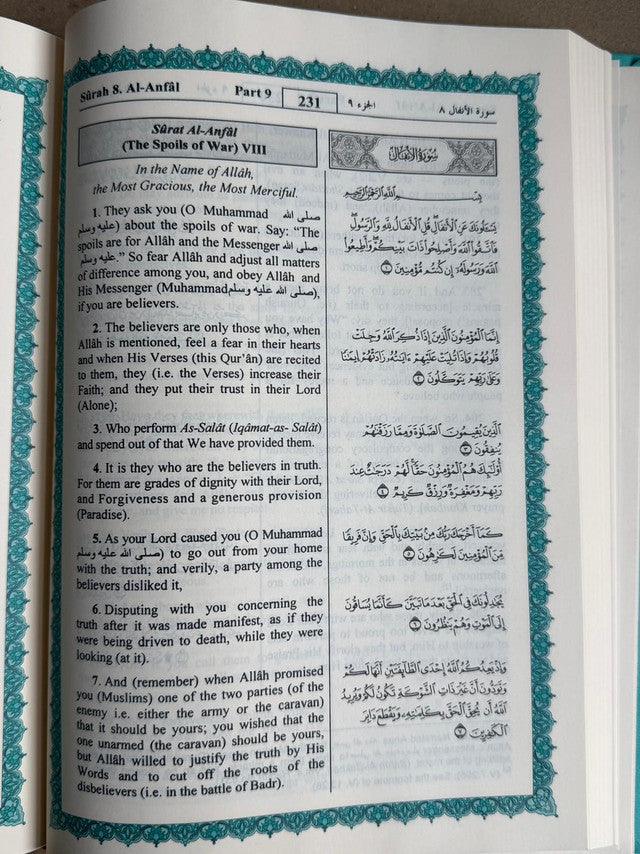 Sûrah 8. Al-Anfâl Part 9 231 الجزء ٩ سورة الأنفال ٨
Sûrat Al-Anfâl
(The Spoils of War) VIII
In the Name of Allâh,
the Most Gracious, the Most Merciful.
1. They ask you (O Muhammad صلى الله
عليه وسلم) about the spoils of war. Say: "The
spoils are for Allâh and the Messenger صلى الله
عليه وسلم." So fear Allâh and adjust all matters
of difference among you, and obey Allâh and
His Messenger (Muhammad صلى الله عليه وسلم),
if you are believers.
2. The believers are only those who, when
Allâh is mentioned, feel a fear in their hearts
and when His Verses (this Qur'ân) are recited
to them, they (i.e. the Verses) increase their
Faith; and they put their trust in their Lord
(Alone);
3. Who perform As-Salât (Iqâmat-as- Salât)
and spend out of that We have provided them.
4. It is they who are the believers in truth.
For them are grades of dignity with their Lord,
and Forgiveness and a generous provision
(Paradise).
5. As your Lord caused you (O Muhammad
صلى الله عليه وسلم) to go out from your home
with the truth; and verily, a party among the
believers disliked it,
6. Disputing with you concerning the
truth after it was made manifest, as if they
were being driven to death, while they were
looking (at it).
7. And (remember) when Allâh promised
you (Muslims) one of the two parties (of the
enemy i.e. either the army or the caravan)
that it should be yours; you wished that the
one unarmed (the caravan) should be yours,
but Allâh willed to justify the truth by His
Words and to cut off the roots of the
disbelievers (i.e. in the battle of Badr).
سُورَةُ الأَنفَالِ
بِسْمِ اللَّهِ الرَّحْمَٰنِ الرَّحِيمِ
يَسْأَلُونَكَ عَنِ الْأَنفَالِ قُلِ الْأَنفَالُ لِلَّهِ وَالرَّسُولِ
فَاتَّقُوا اللَّهَ وَأَصْلِحُوا ذَاتَ بَيْنِكُمْ وَأَطِيعُوا
اللَّهَ وَرَسُولَهُ إِن كُنتُم مُّؤْمِنِينَ ١
إِنَّمَا الْمُؤْمِنُونَ الَّذِينَ إِذَا ذُكِرَ اللَّهُ وَجِلَتْ
قُلُوبُهُمْ وَإِذَا تُلِيَتْ عَلَيْهِمْ ءَايَٰتُهُ زَادَتْهُمْ إِيمَٰنًا
وَعَلَىٰ رَبِّهِمْ يَتَوَكَّلُونَ ٢
الَّذِينَ يُقِيمُونَ الصَّلَوٰةَ وَمِمَّا رَزَقْنَٰهُمْ
يُنفِقُونَ ٣
أُولَٰئِكَ هُمُ الْمُؤْمِنُونَ حَقًّا لَّهُمْ دَرَجَٰتٌ عِندَ
رَبِّهِمْ وَمَغْفِرَةٌ وَرِزْقٌ كَرِيمٌ ٤
كَمَا أَخْرَجَكَ رَبُّكَ مِن بَيْتِكَ بِالْحَقِّ وَإِنَّ فَرِيقًا
مِّنَ الْمُؤْمِنِينَ لَكَٰرِهُونَ ٥
يُجَٰدِلُونَكَ فِي الْحَقِّ بَعْدَ مَا تَبَيَّنَ كَأَنَّمَا يُسَاقُونَ
إِلَى الْمَوْتِ وَهُمْ يَنظُرُونَ ٦
وَإِذْ يَعِدُكُمُ اللَّهُ إِحْدَى الطَّائِفَتَيْنِ أَنَّهَا لَكُمْ
وَتَوَدُّونَ أَنَّ غَيْرَ ذَاتِ الشَّوْكَةِ تَكُونُ لَكُمْ وَيُرِيدُ
اللَّهُ أَن يُحِقَّ الْحَقَّ بِكَلِمَٰتِهِ وَيَقْطَعَ دَابِرَ
الْكَٰفِرِينَ ٧